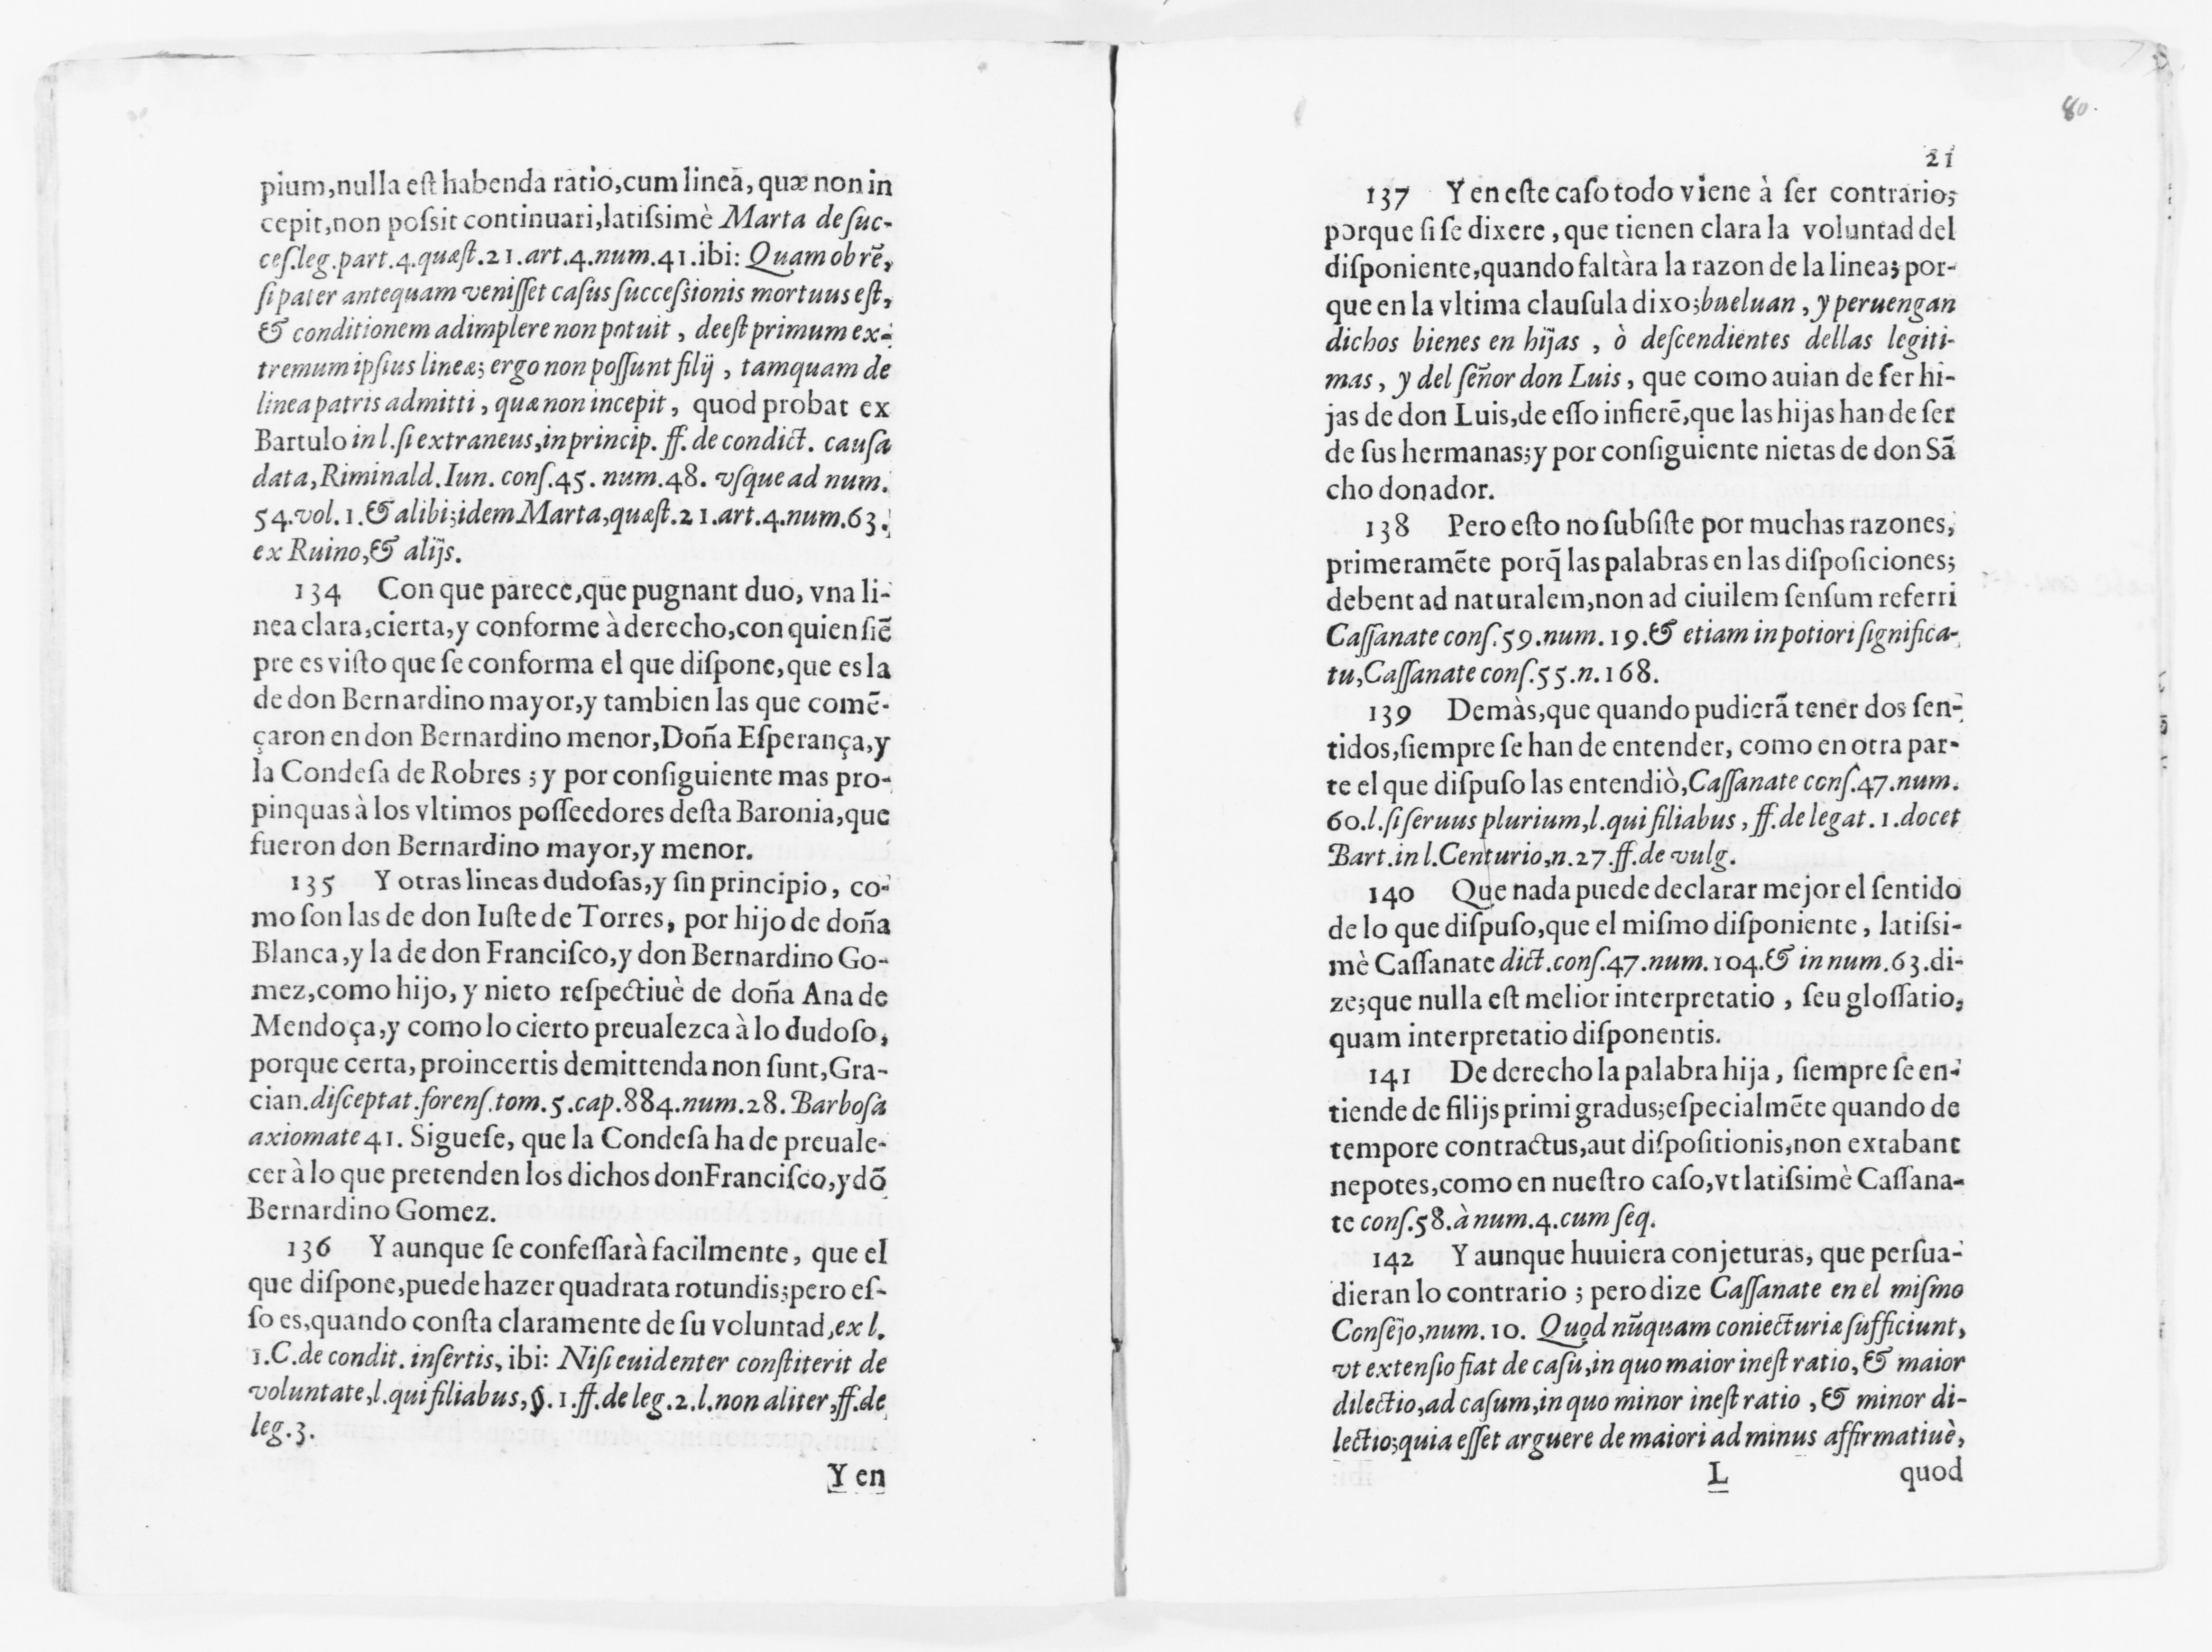 pium,nulla eſt habenda ratio,cum lineā, quæ non in
cepit,non poſsit continuari,latiſsimè Marta de ſuc-
ceſ.leg.part.4.quæſt.21.art.4.num.41.ibi: Quam ob rē,
ſi pater antequam veniſſet caſus ſucceſsionis mortuus eſt,
& conditionem adimplere non potuit, deeſt primum ex-
tremum ipſius lineæ; ergo non poſſunt filij, tamquam de
linea patris admitti, quæ non incepit, quod probat ex
Bartulo in l.ſi extraneus,in princip. ff. de condict. cauſa
data, Riminald. Iun. conſ.45. num.48. vſque ad num.
54.vol. 1.& alibi;idem Marta,quæſt.21.art.4.num.63.
ex Ruino,& alijs.
134 Con que parece,que pugnant duo, vna li-
nea clara,cierta,y conforme à derecho,con quien ſiē
pre es viſto que ſe conforma el que diſpone,que es la
de don Bernardino mayor,y tambien las que comē-
çaron en don Bernardino menor,Doña Eſperança,y
la Condeſa de Robres ; y por conſiguiente mas pro-
pinquas à los vltimos poſſeedores deſta Baronia,que
fueron don Bernardino mayor,y menor.
135 Y otras lineas dudoſas,y ſin principio, co-
mo ſon las de don Iuſte de Torres, por hijo de doña
Blanca,y la de don Franciſco,y don Bernardino Go-
mez,como hijo, y nieto reſpectiuè de doña Ana de
Mendoça,y como lo cierto preualezca à lo dudoſo,
porque certa, proincertis demittenda non ſunt,Gra-
cian.diſceptat.forenſ.tom.5.cap.884.num.28. Barboſa
axiomate 41. Sigueſe, que la Condeſa ha de preuale-
cer à lo que pretenden los dichos don Franciſco,y dō
Bernardino Gomez.
136 Y aunque ſe confeſſarà facilmente, que el
que diſpone,puede hazer quadrata rotundis;pero eſ-
ſo es,quando conſta claramente de ſu voluntad,ex l.
1.C.de condit. inſertis, ibi: Niſi euidenter conſtiterit de
voluntate,l.qui filiabus,§. 1.ff.de leg.2.l.non aliter,ff.de
leg.3.
Y en
80.
21
137 Y en eſte caſo todo viene à ſer contrario;
porque ſi ſe dixere, que tienen clara la voluntad del
diſponiente,quando faltàra la razon de la linea; por-
que en la vltima clauſula dixo;bueluan, y peruengan
dichos bienes en hijas, ò deſcendientes dellas legiti-
mas, y del ſeñor don Luis, que como auian de ſer hi-
jas de don Luis,de eſſo infierē,que las hijas han de ſer
de ſus hermanas;y por conſiguiente nietas de don Sā
cho donador.
138 Pero eſto no ſubſiſte por muchas razones,
primeramēte porq̄ las palabras en las diſpoſiciones;
debent ad naturalem,non ad ciuilem ſenſum referri
Caſſanate conſ.59.num.19.& etiam in potiori ſignifica-
tu,Caſſanate conſ.55.n.168.
139 Demàs,que quando pudierā tener dos ſen-
tidos,ſiempre ſe han de entender, como en otra par-
te el que diſpuſo las entendiò,Caſſanate conſ.47.num.
60.l.ſi ſeruus plurium,l.qui filiabus, ff.de legat.1.docet
Bart.in l.Centurio,n.27.ff.de vulg.
140 Que nada puede declarar mejor el ſentido
de lo que diſpuſo,que el miſmo diſponiente, latiſsi-
mè Caſſanate dict.conſ.47.num.104.& in num.63.di-
ze;que nulla eſt melior interpretatio, ſeu gloſſatio,
quam interpretatio diſponentis.
141 De derecho la palabra hija, ſiempre ſe en-
tiende de filijs primi gradus;eſpecialmēte quando de
tempore contractus,aut diſpoſitionis,non extabant
nepotes,como en nueſtro caſo,vt latiſsimè Caſſana-
te conſ.58.à num.4.cum ſeq.
142 Y aunque huuiera conjeturas, que perſua-
dieran lo contrario ; pero dize Caſſanate en el miſmo
Conſejo,num.10. Quod nūquam coniecturiæ ſufficiunt,
vt extenſio fiat de caſu,in quo maior ineſt ratio,& maior
dilectio,ad caſum,in quo minor ineſt ratio,& minor di-
lectio;quia eſſet arguere de maiori ad minus affirmatiuè,
L quod